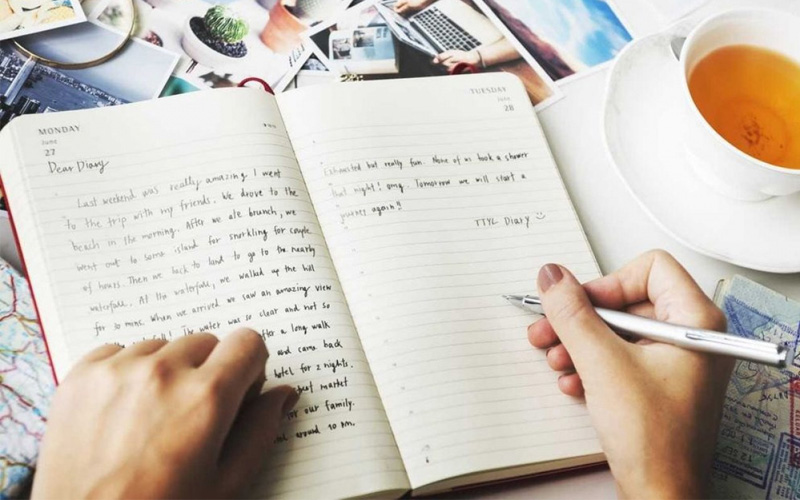 MONDAY
June
27
Dear Diary
Last weekend was really amazing. I went
to the trip with my friends. We drove to the
beach in the morning. After we ate brunch, we
went out to some island for snorkling for couple
of hours. Then we back to land to go to the nearby
waterfall. At the waterfall, we walked up the hill
for 30 mins. When we arrived we saw an amazing view
waterfall! The water was so clear and not so
after a long walk
and came back
hotel for 2 nights.
market
for our family.
around 10 pm.
TUESDAY
June
28
Exhausted but really fun. None of us took a shower
that night! omg. Tomorrow we will start a
journey again!!
TTYL Diary